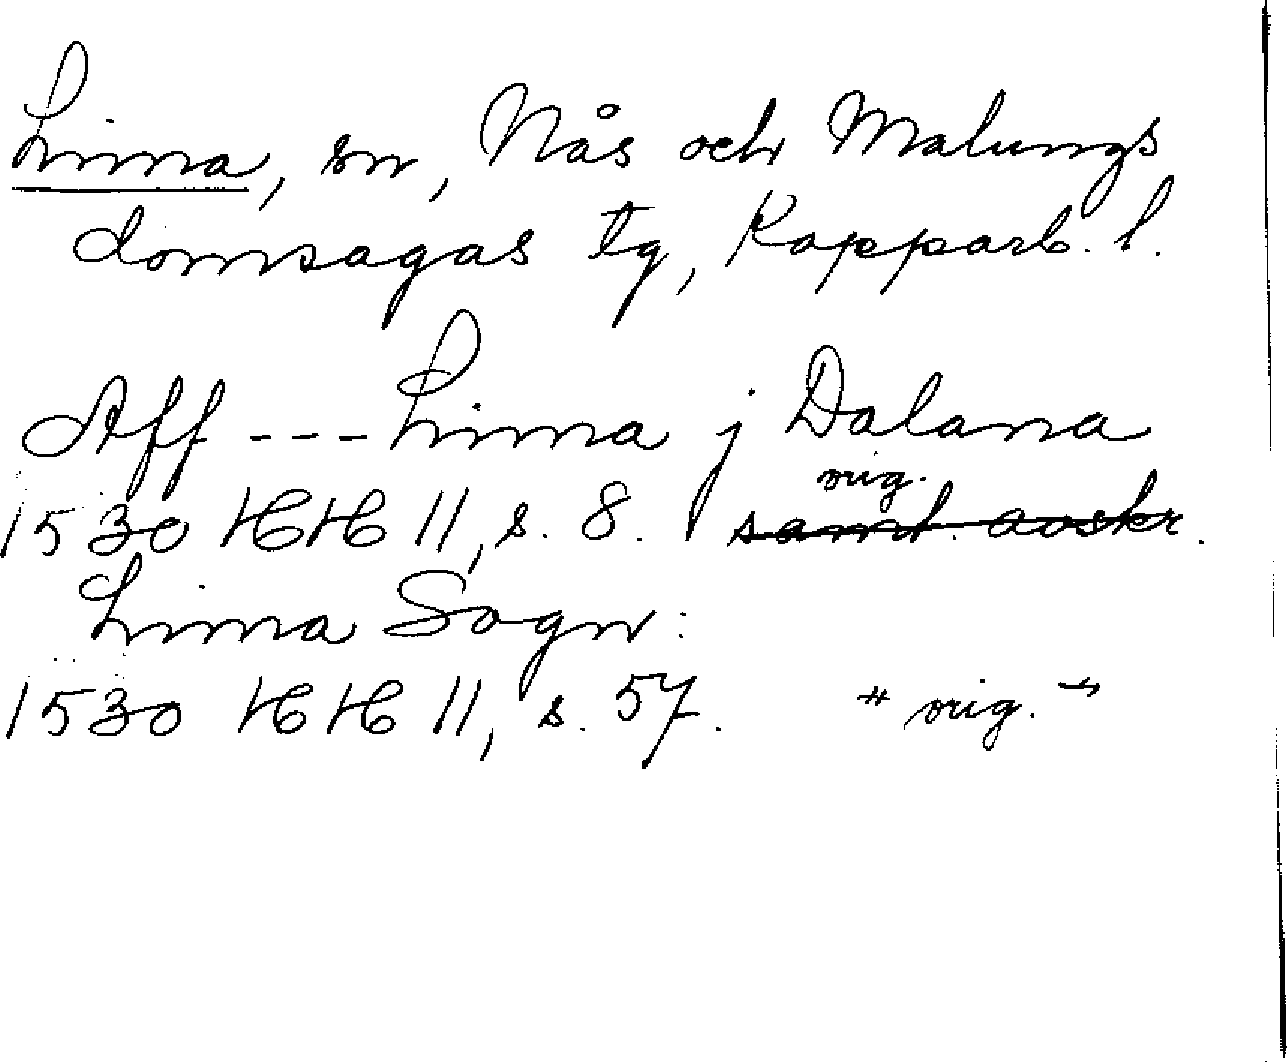 Lima, sn, Nås och Malungs
domsagas tg, Kopparb. l.
Aff --- Lima j Dalana
orig.
1530 HH 11, s. 8. samt. avskr.
Lima Sogn:
1530 HH 11, s. 57. " orig. "